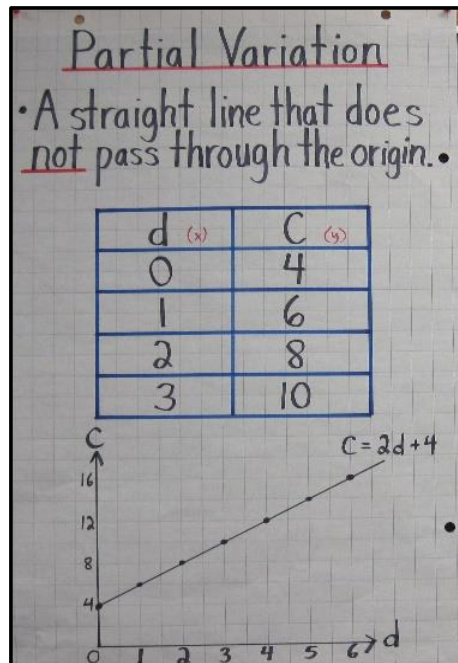 Partial Variation
• A straight line that does
not pass through the origin.
d (x) C (y)
0 4
1 6
2 8
3 10
C
C = 2d + 4
16
12
8
4
0 1 2 3 4 5 6 d